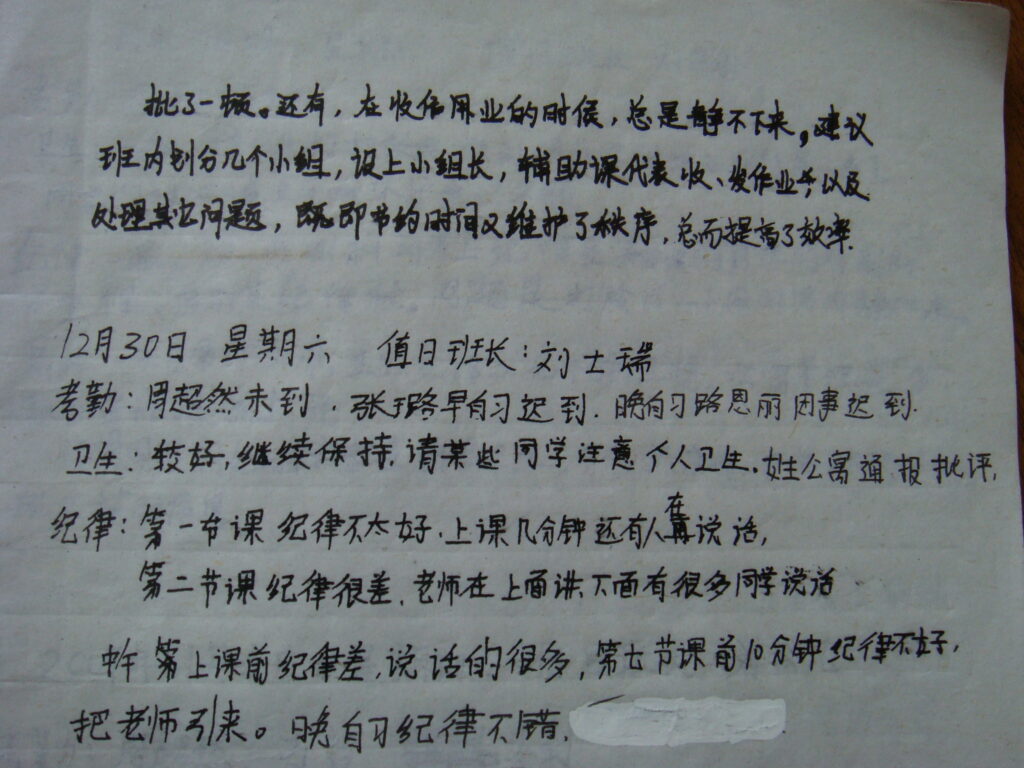 批了一顿。还有，在收作业的时候，总是静不下来，建议
班内划分几个小组，设上小组长，辅助课代表收、发作业，以及
处理其它问题，既即节约时间又维护了秩序，总而提高了效率.
12月30日 星期六 值日班长：刘士瑞
考勤：周超然未到．张璐早自习迟到．晚自习路思丽因事迟到.
卫生：较好，继续保持．请某些同学注意个人卫生．女生公寓通报批评，
纪律：第一节课纪律不太好．上课几分钟还有人在说话，
第二节课纪律很差．老师在上面讲下面有很多同学说话
中午第上课前纪律差，说话的很多，第七节课前10分钟纪律不好，
把老师引来。晚自习纪律不错．